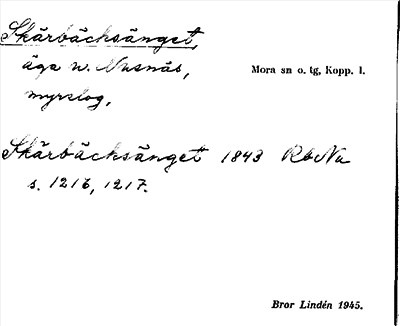 Skärbäcksänget,
äga v. Nusnäs,
Mora sn o. tg, Kopp. l.
myrslog,
Skärbäcksänget 1843 RbNu
s. 1216, 1217.
Bror Lindén 1945.